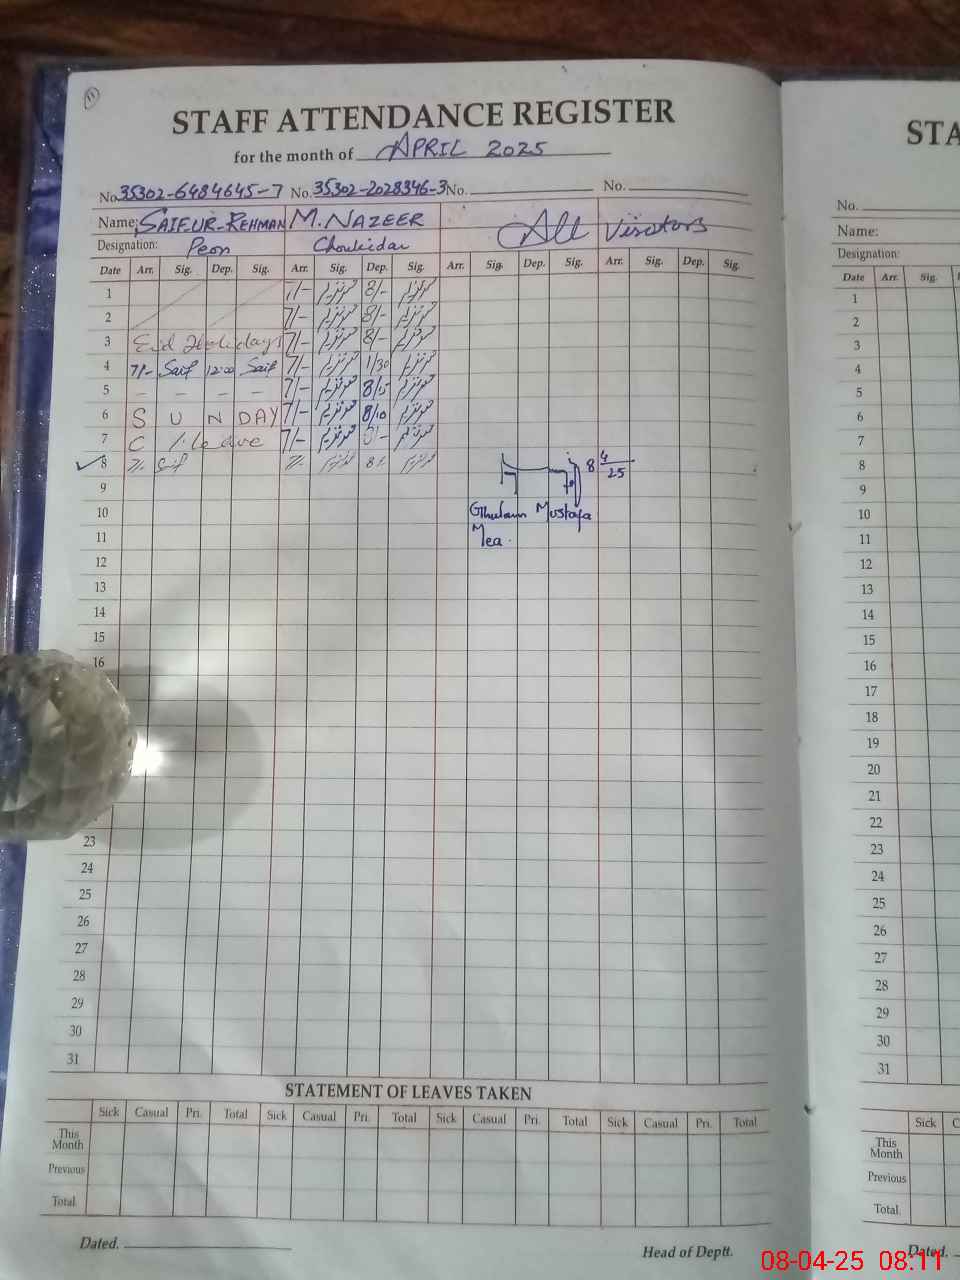 11
STAFF ATTENDANCE REGISTER
for the month of APRIL 2025
No. 35302-6484645-7 No. 35302-2028346-3 No. No.
Name: SAIF.UR-REHMAN M. NAZEER All Visitors
Designation: Peon Chowkidar
Date Arr. Sig. Dep. Sig. Arr. Sig. Dep. Sig. Arr. Sig. Dep. Sig. Arr. Sig. Dep. Sig.
1 7/- 8/-
2 7/- 8/-
3 Eid Holidays 7/- 8/-
4 7/- Saif 12:00 Saif 7/- 1/30
5 - - - - 7/- 8/15
6 S U N DAY 7/- 8/10
7 C / leave 7/- 8/-
8 7/. Saif 7/. 8/.
8 4/25
9
10 Ghulam Mustafa
11 Mea.
12
13
14
15
16
23
24
25
26
27
28
29
30
31
STATEMENT OF LEAVES TAKEN
Sick Casual Pri. Total Sick Casual Pri. Total Sick Casual Pri. Total Sick Casual Pri. Total
This Month
Previous
Total
Dated. Head of Deptt.
STA
No.
Name:
Designation:
Date Arr. Sig.
1
2
3
4
5
6
7
8
9
10
11
12
13
14
15
16
17
18
19
20
21
22
23
24
25
26
27
28
29
30
31
Sick C
This Month
Previous
Total
Dated.
08-04-25 08:11